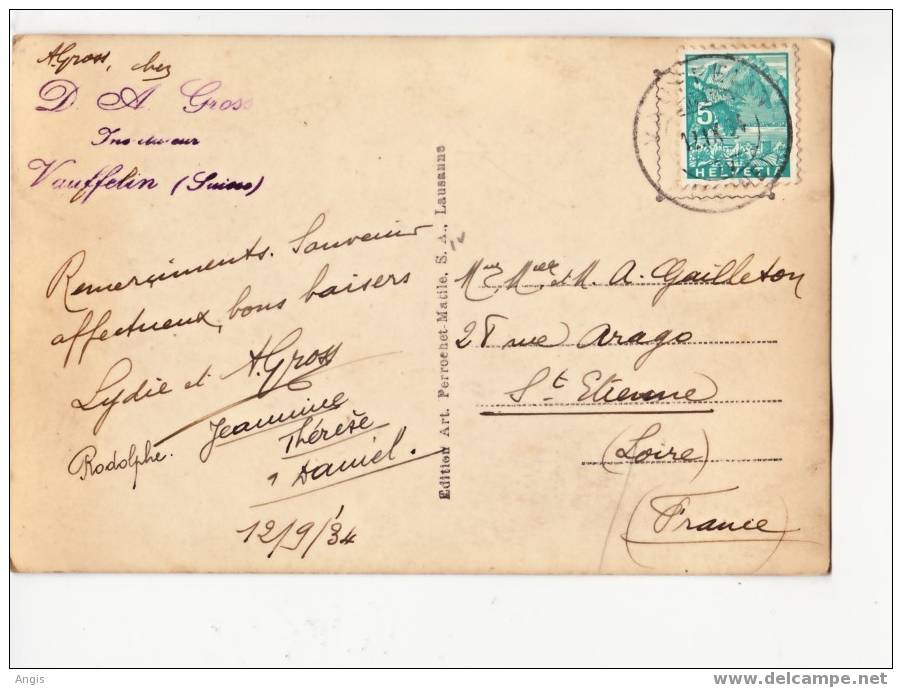 A. Gross, chez
D. A. Gross
Vauffelin (Suisse)
Remerciments. Souvenir
affectueux, bons baisers
Lydie et A. Gross
Jeannine
Thérèse
Rodolphe.
Daniel.
12/9/34
Edition Art. Perrochet-Matile, S. A., Lausanne
5
HELVETIA
et M. A. Gailleton
rue Arago
St Etienne
(Loire)
(France)
Angis
www.delcampe.net